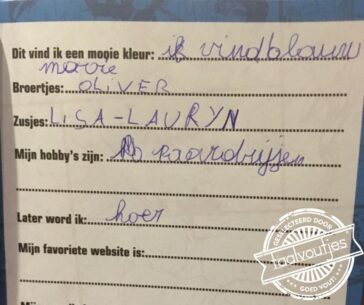 Dit vind ik een mooie kleur: ik vindblauw
mooie
Broertjes: OLIVER
Zusjes: LISA-LAURYN
Mijn hobby's zijn: paardrijjen
Later word ik: hoer
Mijn favoriete website is:
GESELECTEERD DOOR
Taalvoutjes
GOED VOUT!